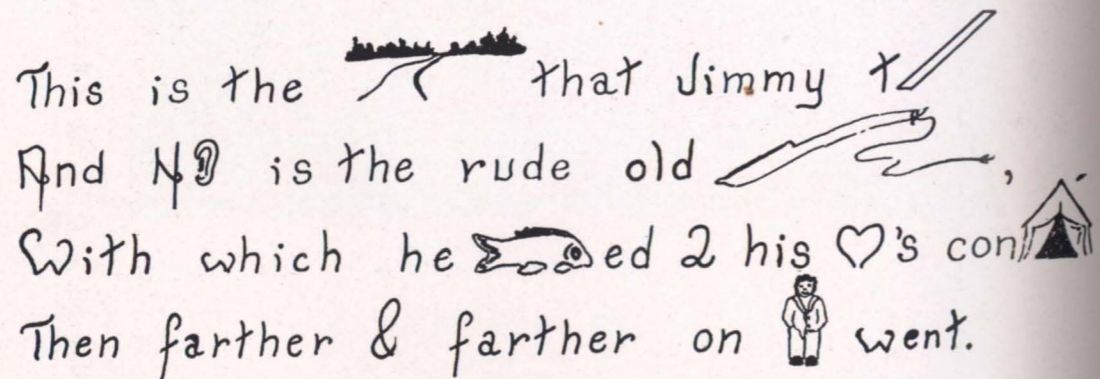 This is the that Jimmy t
And N is the rude old ,
With which he ed 2 his 's con
Then farther & farther on went.